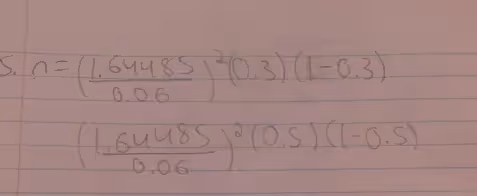 5. n=(1.64485/0.06)²(0.3)(1-0.3)
(1.64485/0.06)²(0.5)(1-0.5)